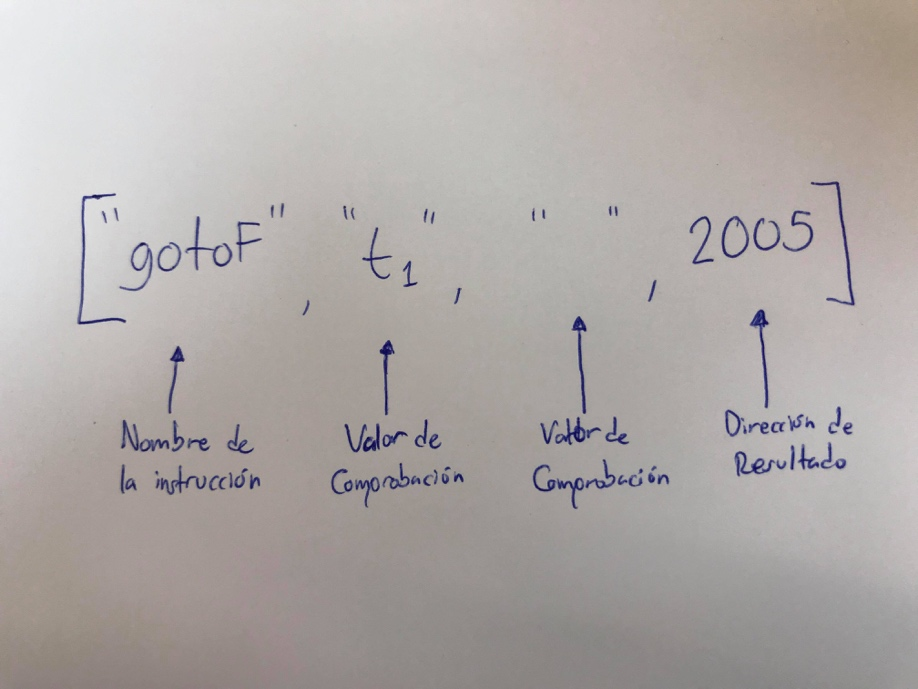 ["gotoF", "t1", " ", 2005]
Nombre de
la instrucción
Valor de
Comprobación
Valor de
Comprobación
Dirección de
Resultado